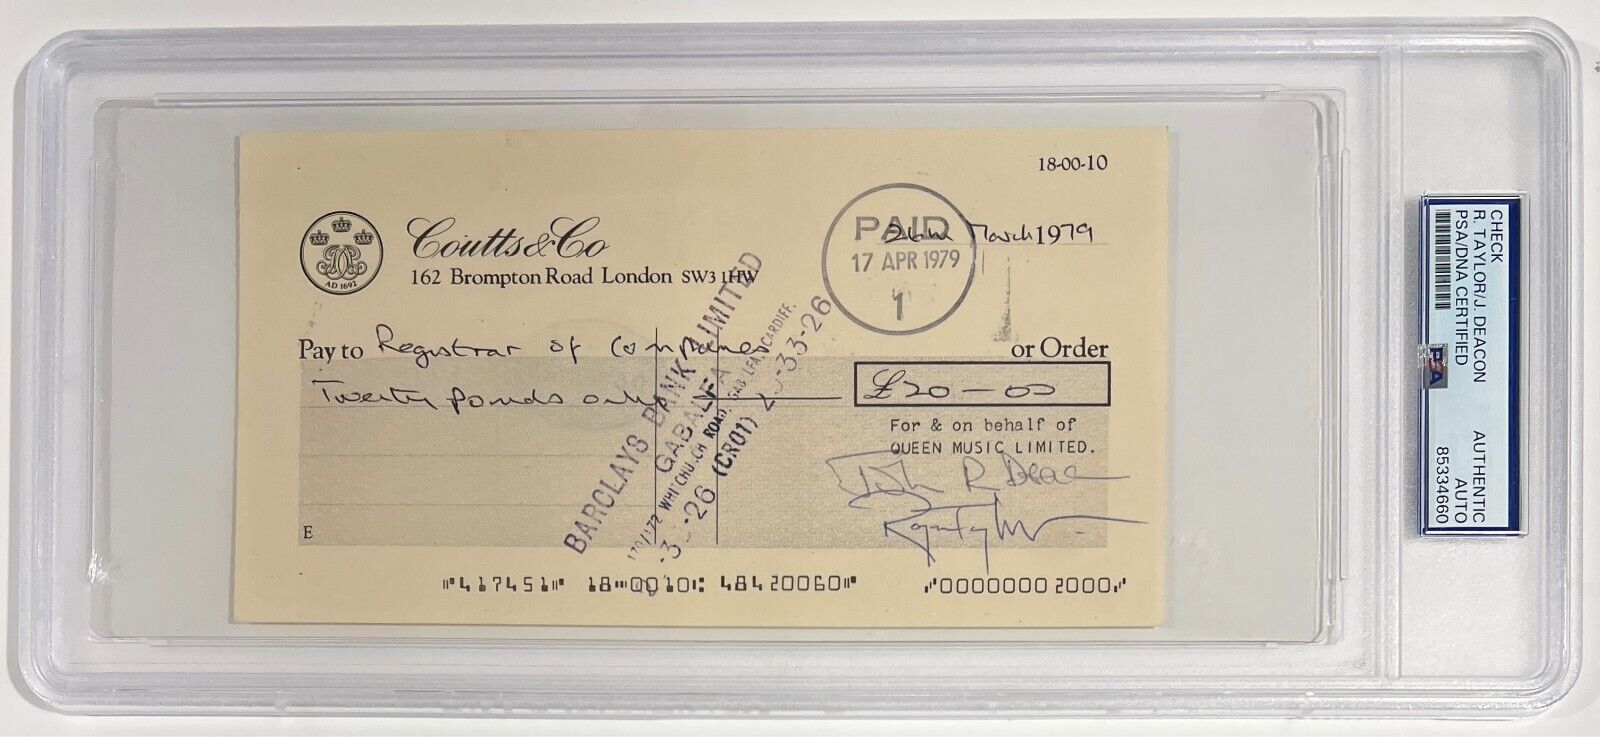 18-00-10
Coutts & Co
162 Brompton Road London SW3 1HW
AD 1692
PAID
17 APR 1979
1
March 1979
Pay to Registrar of Companies or Order
Twenty pounds only £20-00
For & on behalf of
QUEEN MUSIC LIMITED.
John R Deacon
Roger Taylor
BARCLAYS BANK LIMITED
GABALFA
WHITCHURCH ROAD, GABALFA, CARDIFF.
(CR01) 20-33-26
E
⑈417451⑈ 18⑉0010⑆ 48420060⑈ ⑇0000002000⑇
CHECK
R. TAYLOR/J. DEACON
PSA/DNA CERTIFIED
PSA
AUTHENTIC
AUTO
85334660